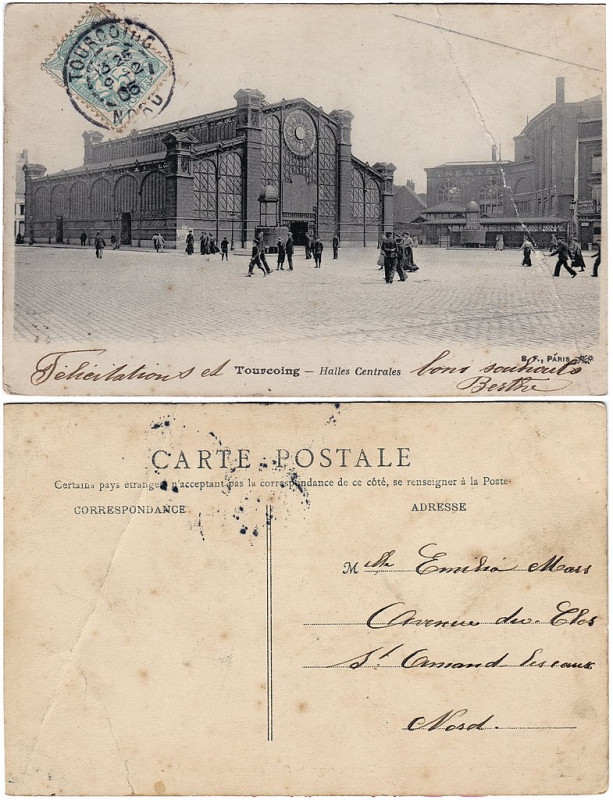 TOURCOING
NORD
THEATRE
B. F., PARIS
Félicitations et Tourcoing — Halles Centrales bons souhaits
Berthe
CARTE POSTALE
Certains pays étrangers n'acceptant pas la correspondance de ce côté, se renseigner à la Poste
CORRESPONDANCE
ADRESSE
Mlle Emilia Mars
Avenue du Clos
St Amand les eaux
Nord.